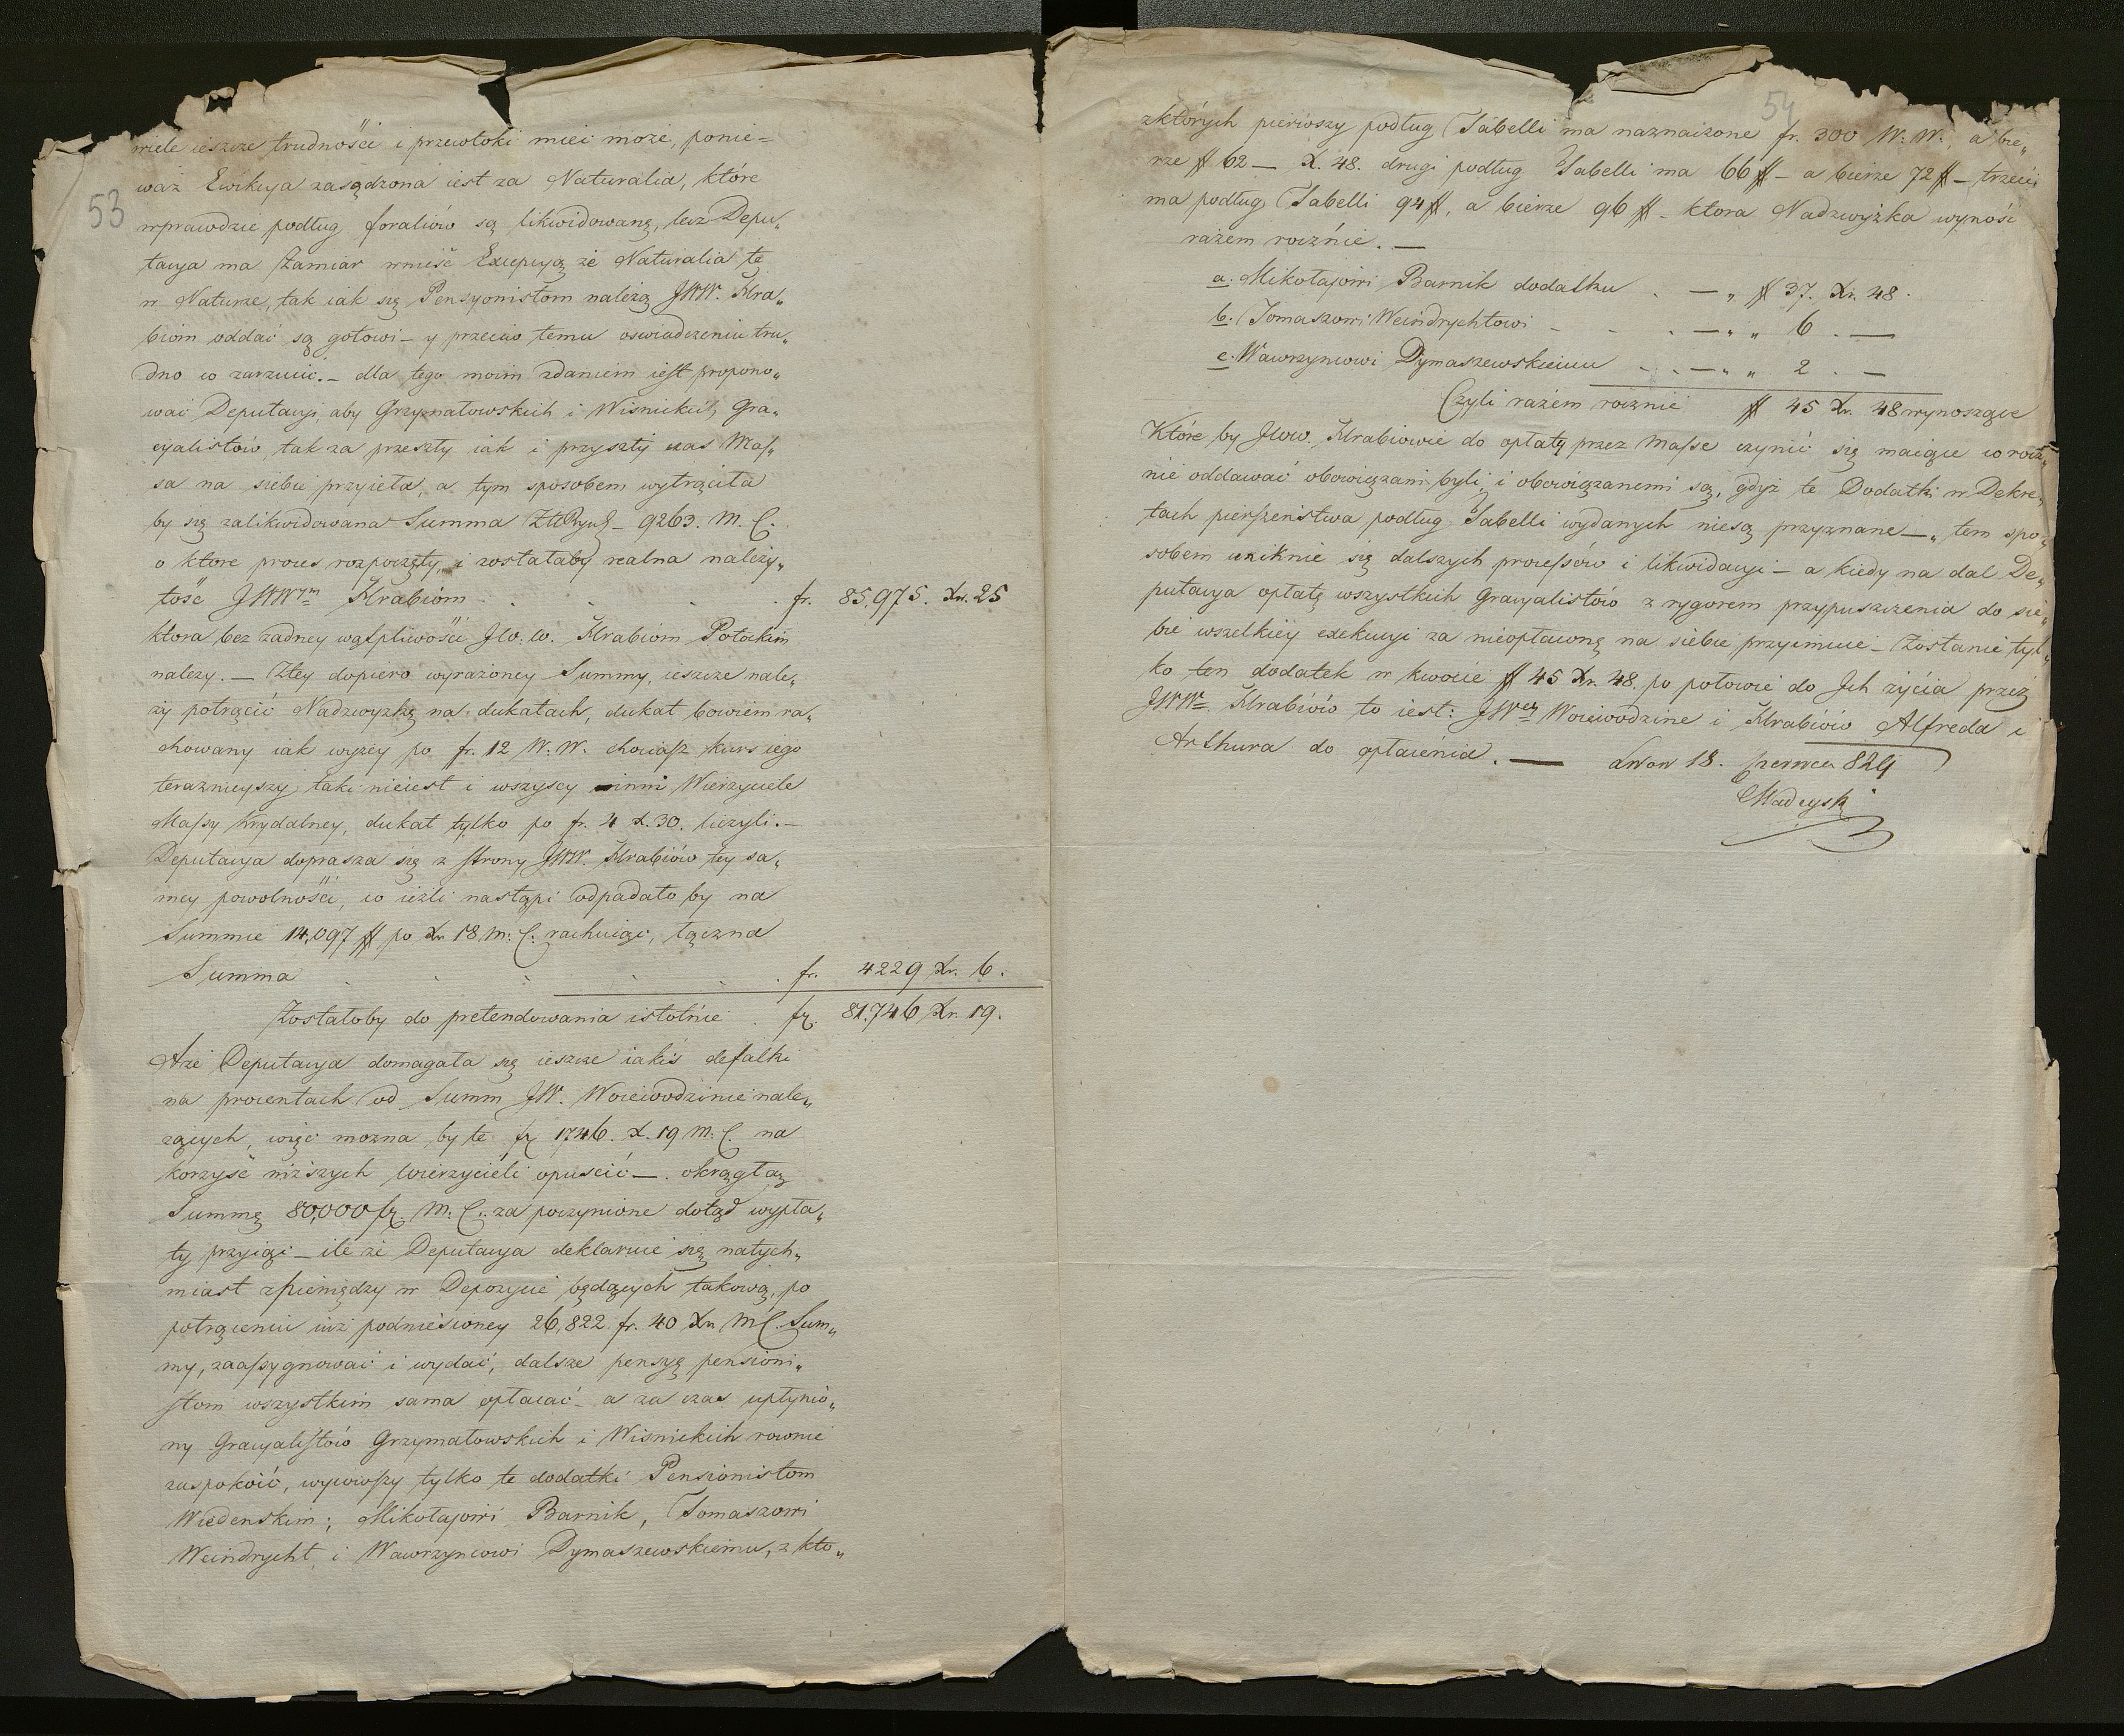 53
wiele ieszcze trudności i przewłoki mieć może, ponie=
waż Ewikcya zasądzona iest za Naturalia, które
wprawdzie podług foraliów są likwidowane, lecz Depu„
tacya ma zamiar wnieść Excepcyą że Naturalia te
w Naturze, tak iak się Pensyonistom należą JWW. Hra„
biom oddać są gotowi – y przeciw temu oswiadczeniu tru„
dno co zarzucić. – dla tego moim zdaniem iest propono„
wać Deputacyi, aby Grzymałowskich i Wisnickich gra„
cyalistów, tak za przeszły iak i przyszły czas Mas„
sa na siebie przyieła, a tym sposobem wytrąciła
by się zalikwidowana Summa 9263. M. C.
o które proces rozpoczęty, i zostałaby realna należy„
tość JWWm Hrabiom . . . . fr. 85,975. Xr. 25
ktora bez żadney wątpliwości JW. W. Hrabiom Potockim
należy. – Ztey dopiero wyrażoney Summy, ieszcze nale„
ży potrącić Nadzwyżkę na dukatach, dukat bowiem ra„
chowany iak wyżey po fr. 12 W. W. chociasz kurs iego
teraznieyszy taki nieiest i wszyscy inni Wierzyciele
Massy Krydalney, dukat tylko po fr. 4 X. 30. liczyli. –
Deputacya doprasza się z strony JWW. Hrabiów tey sa„
mey powolności, co ieżli nastąpi odpadało by na
Summie 14,097 # po Xr 18 M. C. rachuiąc, łączna
Summa . . . . . fr. 4229 Xr. 6.
Zostałoby do pretendowania istotnie . fr. 81,746 Xr. 19.
Aże Deputacya domagała się ieszcze iakiś defalki
na procentach od Summ JW. Woiewodzinie nale„
żących, więc można by te fr 1746. X. 19 M. C. na
korzyść niższych wierzycieli opuścić –. okrągłą
Summę 80,000 fr. M. C. za poczynione dotąd wypła„
ty przyiąć – ile że Deputacya deklaruie się natych„
miast zpieniędzy w Depozycie będących takową, po
potrąceniu iuż podniesioney 26,822 fr. 40 Xr MC. Sum„
my, zaassygnować i wydać, dalsze pensyę pensioni„
stom wszystkim sama opłacać – a za czas upłynio„
ny Gracyalistów Grzymałowskich i Wisnickich rownie
zaspokoić, wyiowszy tylko te dodatki Pensionistom
Wiedenskim; Mikołajowi Barnik, Tomaszowi
Weindrycht, i Wawrzyncowi Dymaszewskiemu, z kto„
54
zktórych pierwszy podług Tabelli ma naznaczone fr. 300 W. W., a bie„
rze # 62 – X. 48. drugi podług Tabelli ma 66 # – a bierze 72 # – trzeci
ma podług Tabelli 94 #, a bierze 96 # – ktora Nadzwyżka wynośi
razem rocznie. –
a. Mikołajowi Barnik dodatku . – „ # 37. Xr. 48.
b. Tomaszowi Weindrychtowi – . . – „ „ 6 . –
c. Wawrzyncowi Dymaszewskiemu . . – „ „ 2 . –
Czyli razem rocznie # 45 Xr. 48 wynoszące
Które by JWW. Hrabiowie do opłaty przez Masse czynić się maiące co rocz„
nie oddawać obowiązani byli, i obowiązanemi są, gdyż te Dodatki w Dekre„
tach pierszeństwa podług Tabelli wydanych niesą przyznane –„ tem spo„
sobem uniknie się dalszych processów i likwidacyi – a kiedy na dal De„
putacya opłatę wszystkich Gracyalistów z rygorem przypuszczenia do sie„
bie wszelkiey exekucyi za nieopłaconę na siebie przyimuie – Zostanie tyl„
ko ten dodatek w kwocie # 45 Xr. 48. po połowie do Ich życia przez
JWWch Hrabiów to iest: JWey Woiewodzine i Hrabiów Alfreda i
Arthura do opłacenia. — Lwow 18. Czerwca 829
Madeyski